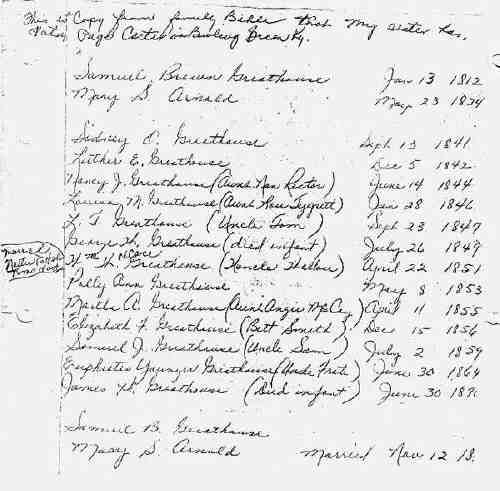 This is Copy from family Bible that my sister has.
Page Carter in Bowling Green Ky.
Samuel Brown Greathouse Jan 13 1812
Mary S. Arnold May 23 1824
Sidney E. Greathouse Sept 13 1841
Luther E. Greathouse Dec 5 1842
Nancy J. Greathouse (Aunt Nan Rector) June 14 1844
Louisa M. Greathouse (Aunt Lou) Jan 28 1846
L. T. Greathouse (Uncle Tom) Sept 23 1847
George W. Greathouse (died infant) July 26 1849
Wm H. Greathouse April 22 1851
Patty Ann Greathouse May 8 1853
Martha A. Greathouse (Aunt Angie McCoy) April 11 1855
Elizabeth F. Greathouse (Bett Smith) Dec 15 1856
Samuel J. Greathouse (Uncle Sam) July 2 1859
Euphrates Younger Greathouse June 30 1864
James W. Greathouse (Died infant) June 30
Samuel B. Greathouse
Mary S. Arnold Married Nov 12 18
married